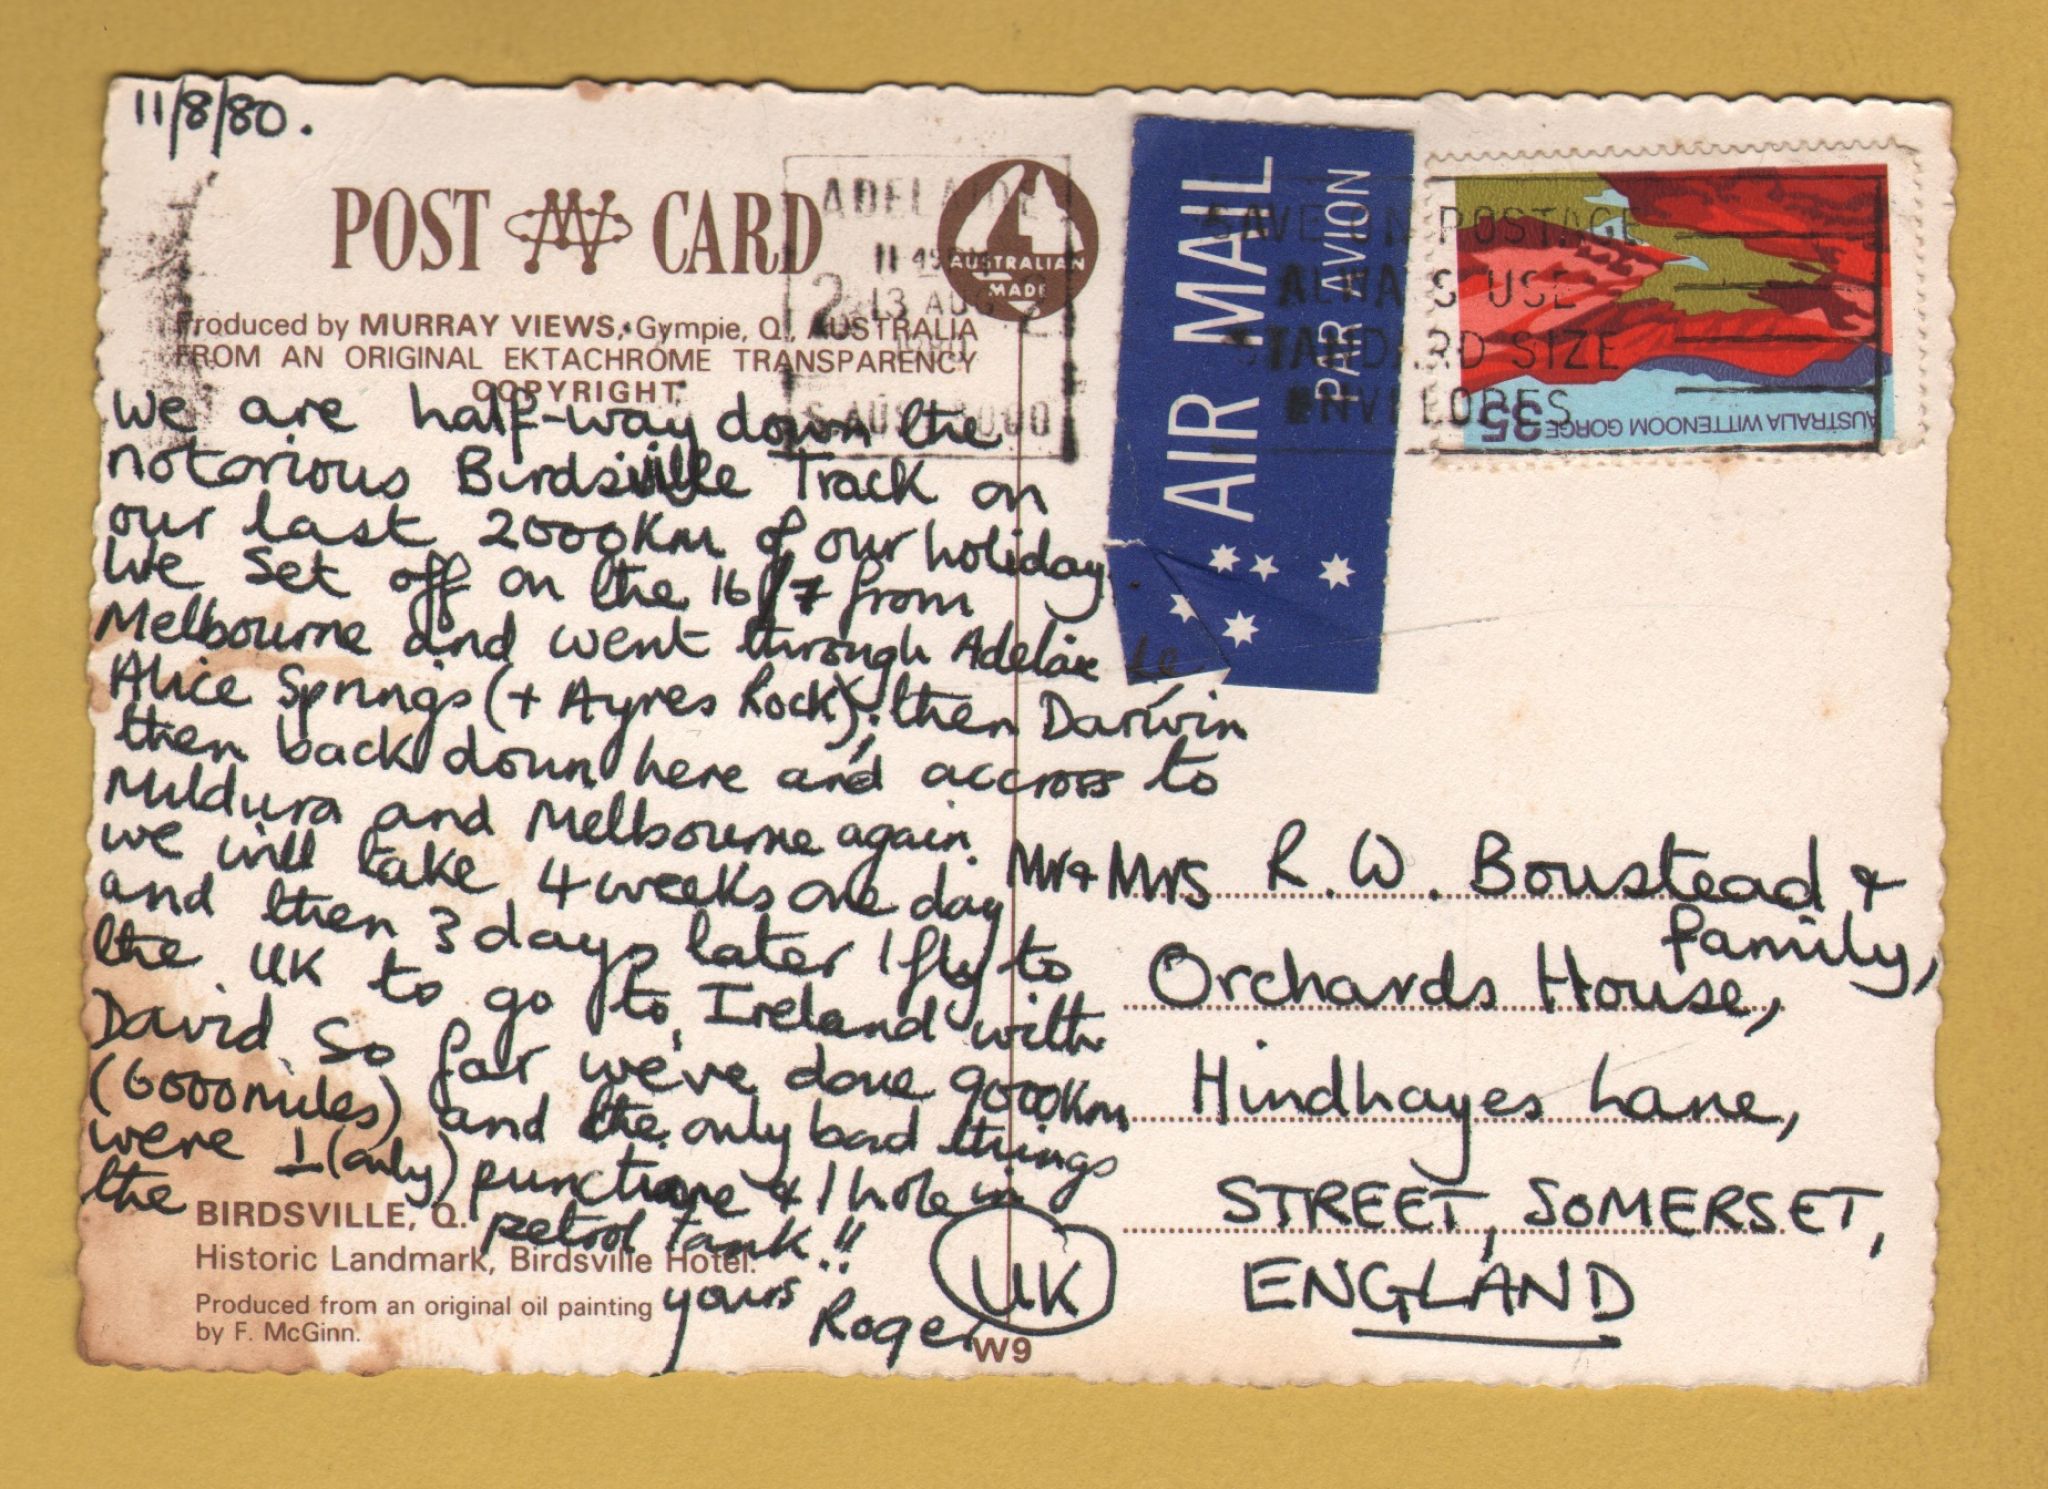 11/8/80.
POST CARD
AUSTRALIAN
MADE
Produced by MURRAY VIEWS, Gympie, Q., AUSTRALIA
FROM AN ORIGINAL EKTACHROME TRANSPARENCY
COPYRIGHT
We are half-way down the
notorious Birdsville Track on
our last 2000Km of our holiday.
We set off on the 16/7 from
Melbourne and went through Adelaide
Alice Springs (+ Ayres Rock); then Darwin
then back down here and accross to
Mildura and Melbourne again.
we will take 4 weeks one day
and then 3 days later I fly to
the UK to go to Ireland with
David. So far we've done 9000Km
(6000 miles) and the only bad things
were 1 (only) puncture & 1 hole in
the petrol tank!!
yours Roger
BIRDSVILLE, Q.
Historic Landmark, Birdsville Hotel.
Produced from an original oil painting
by F. McGinn.
W9
UK
ADELAIDE
13 AUG
AIR MAIL
PAR AVION
SAVE ON POSTAGE
ALWAYS USE
STANDARD SIZE
ENVELOPES
AUSTRALIA WITTENOOM GORGE 35
Mr & Mrs R. W. Boustead &
family,
Orchards House,
Hindhayes Lane,
STREET, SOMERSET,
ENGLAND